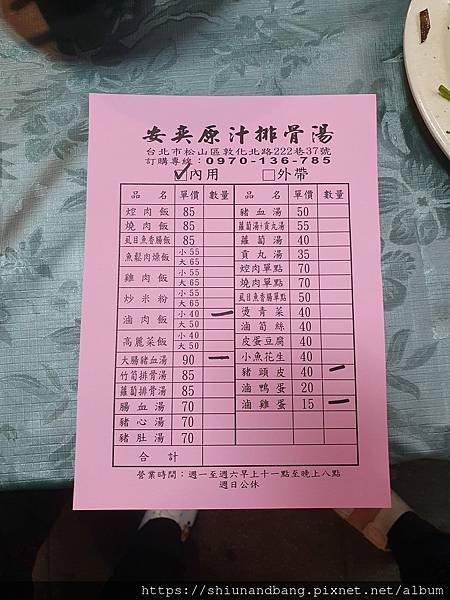 安奕原汁排骨湯
台北市松山區敦化北路222巷37號
訂購專線：0970-136-785
☑內用 □外帶
品名 單價 數量
焢肉飯 85
燒肉飯 85
虱目魚香腸飯 85
魚鬆肉燥飯 小55 大65
雞肉飯 小55 大65
炒米粉 小55 大65
滷肉飯 小40 大50 一
高麗菜飯 小40 大50
大腸豬血湯 90 一
竹筍排骨湯 85
蘿蔔排骨湯 85
腸血湯 70
豬心湯 70
豬肚湯 70
合計
品名 單價 數量
豬血湯 50
蘿蔔湯+貢丸湯 55
蘿蔔湯 40
貢丸湯 35
焢肉單點 70
燒肉單點 70
虱目魚香腸單點 50
燙青菜 40
滷筍絲 40
皮蛋豆腐 40
小魚花生 40
豬頭皮 40 一
滷鴨蛋 20
滷雞蛋 15 一
營業時間：週一至週六早上十一點至晚上八點
週日公休
https://shiunandbang.pixnet.net/album